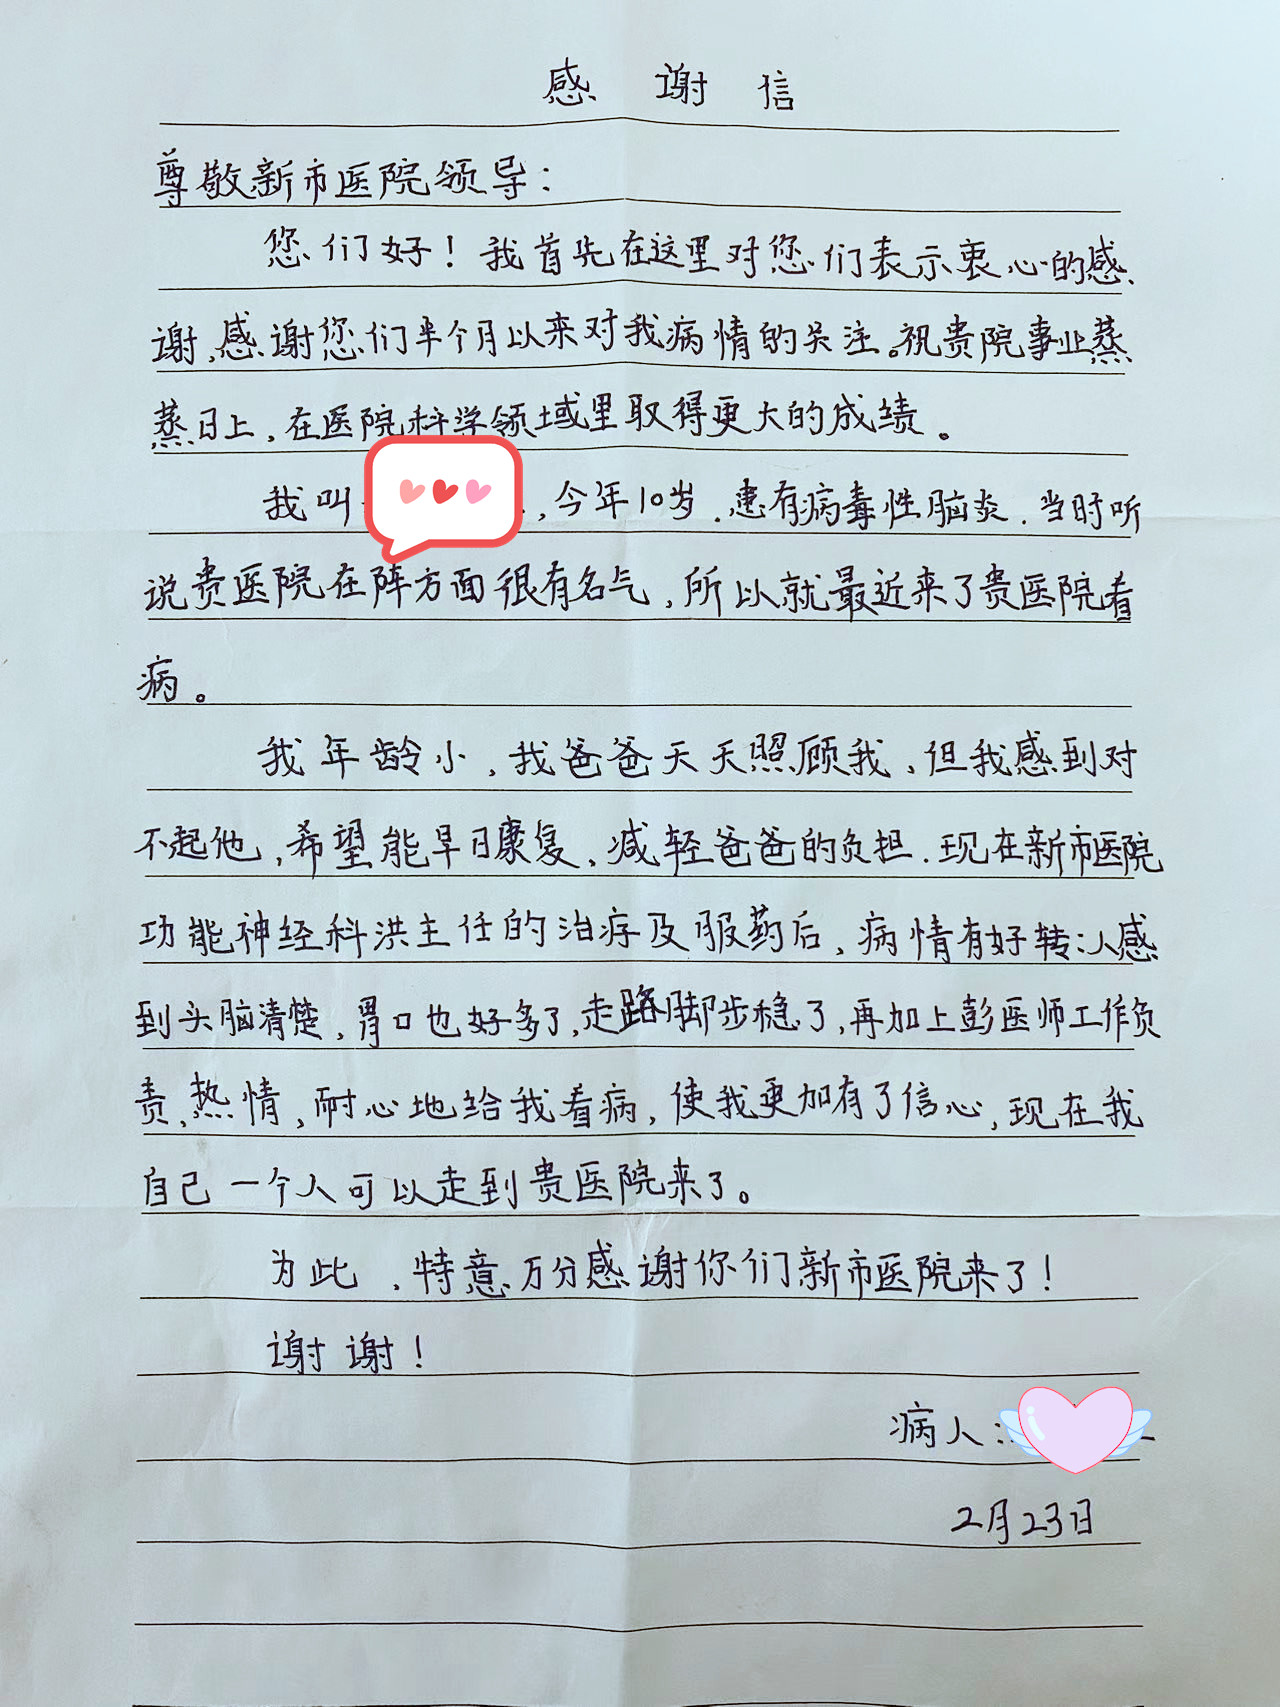 感谢信
尊敬新市医院领导：
您们好！我首先在这里对您们表示衷心的感
谢，感谢您们半个月以来对我病情的关注。祝贵院事业蒸
蒸日上，在医院科学领域里取得更大的成绩。
我叫，今年10岁．患有病毒性脑炎．当时听
说贵医院在阵方面很有名气，所以就最近来了贵医院看
病。
我年龄小，我爸爸天天照顾我，但我感到对
不起他，希望能早日康复，减轻爸爸的负担．现在新市医院
功能神经科洪主任的治疗及服药后，病情有好转：人感
到头脑清楚，胃口也好多了，走路脚步稳了，再加上彭医师工作负
责、热情，耐心地给我看病，使我更加有了信心，现在我
自己一个人可以走到贵医院来了。
为此，特意万分感谢你们新市医院来了！
谢谢！
病人：
2月23日